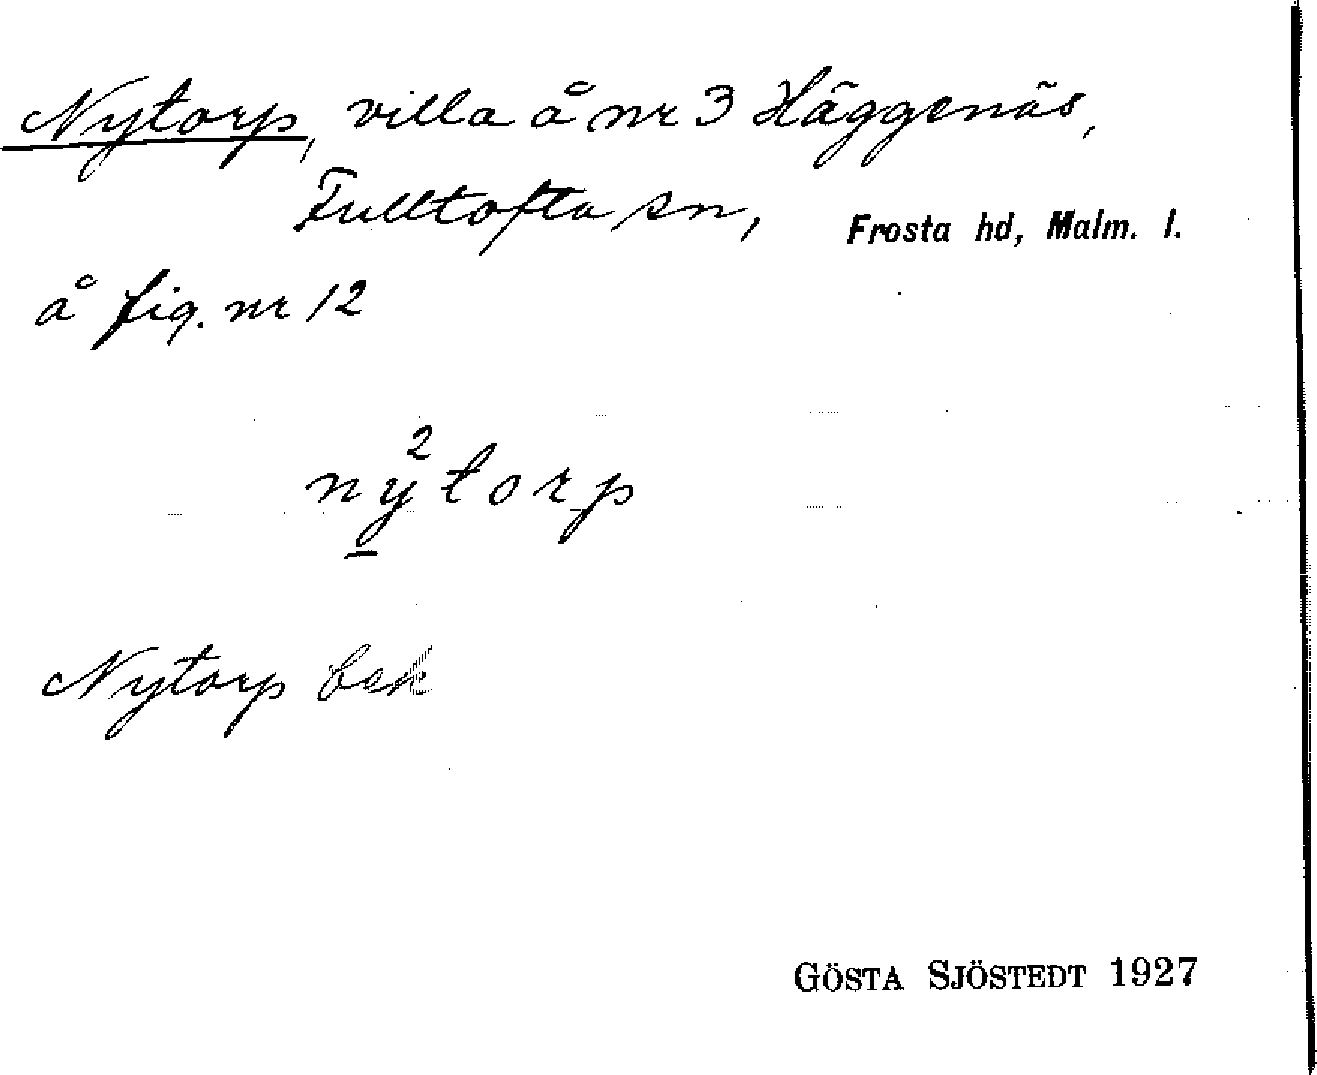 Nytorp, villa å nr 3 Häggenäs,
Fulltofta sn, Frosta hd, Malm. l.
å fig. nr 12
ny²torp
Nytorp bek
GÖSTA SJÖSTEDT 1927